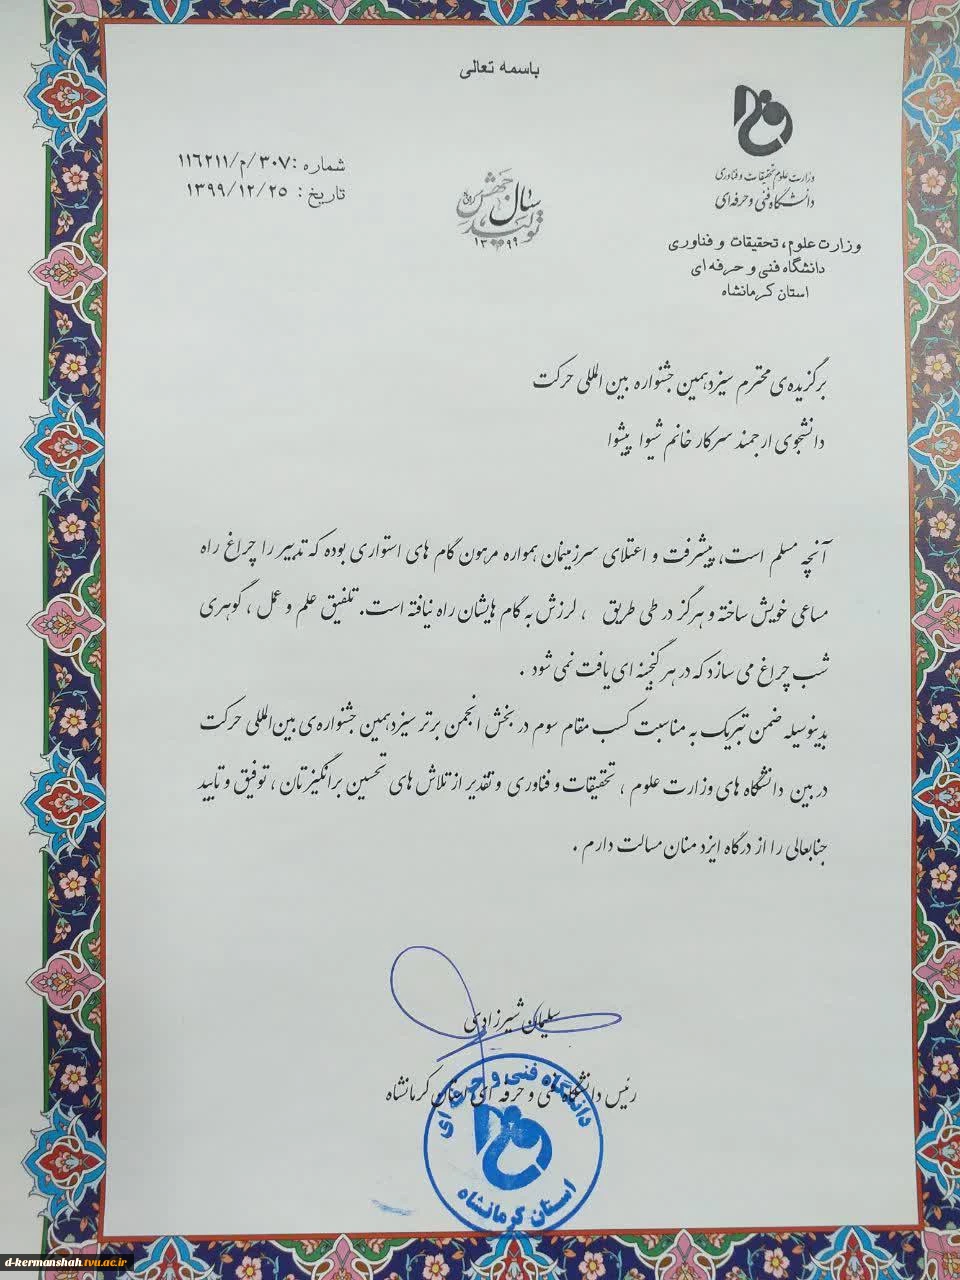 باسمه تعالی
وزارت علوم تحقیقات و فناوری
دانشگاه فنی و حرفه‌ای
وزارت علوم، تحقیقات و فناوری
دانشگاه فنی و حرفه ای
استان کرمانشاه
سال جهش
تولید
۱۳۹۹
شماره :۳۰۷/م/۱۱۶۲۱۱
تاریخ : ۱۳۹۹/۱۲/۲۵
برگزیده‌ی محترم سیزدهمین جشنواره بین المللی حرکت
دانشجوی ارجمند سرکار خانم شیوا پیشوا
آنچه مسلم است، پیشرفت و اعتلای سرزمینمان همواره مرهون گام های استواری بوده که تدبیر را چراغ راه
مساعی خویش ساخته و هرگز در طی طریق ، لرزش به گام هایشان راه نیافته است. تلفیق علم و عمل ، گوهری
شب چراغ می سازد که در هر گنجینه ای یافت نمی شود .
بدینوسیله ضمن تبریک به مناسبت کسب مقام سوم در بخش انجمن برتر سیزدهمین جشنواره‌ی بین‌المللی حرکت
در بین دانشگاه های وزارت علوم ، تحقیقات و فناوری و تقدیر از تلاش های تحسین برانگیزتان ، توفیق و تایید
جنابعالی را از درگاه ایزد منان مسالت دارم .
سلیمان شیرزادی
رئیس دانشگاه فنی و حرفه ای استان کرمانشاه
دانشگاه فنی و حرفه ای
استان کرمانشاه
d-kermanshah.tvu.ac.ir